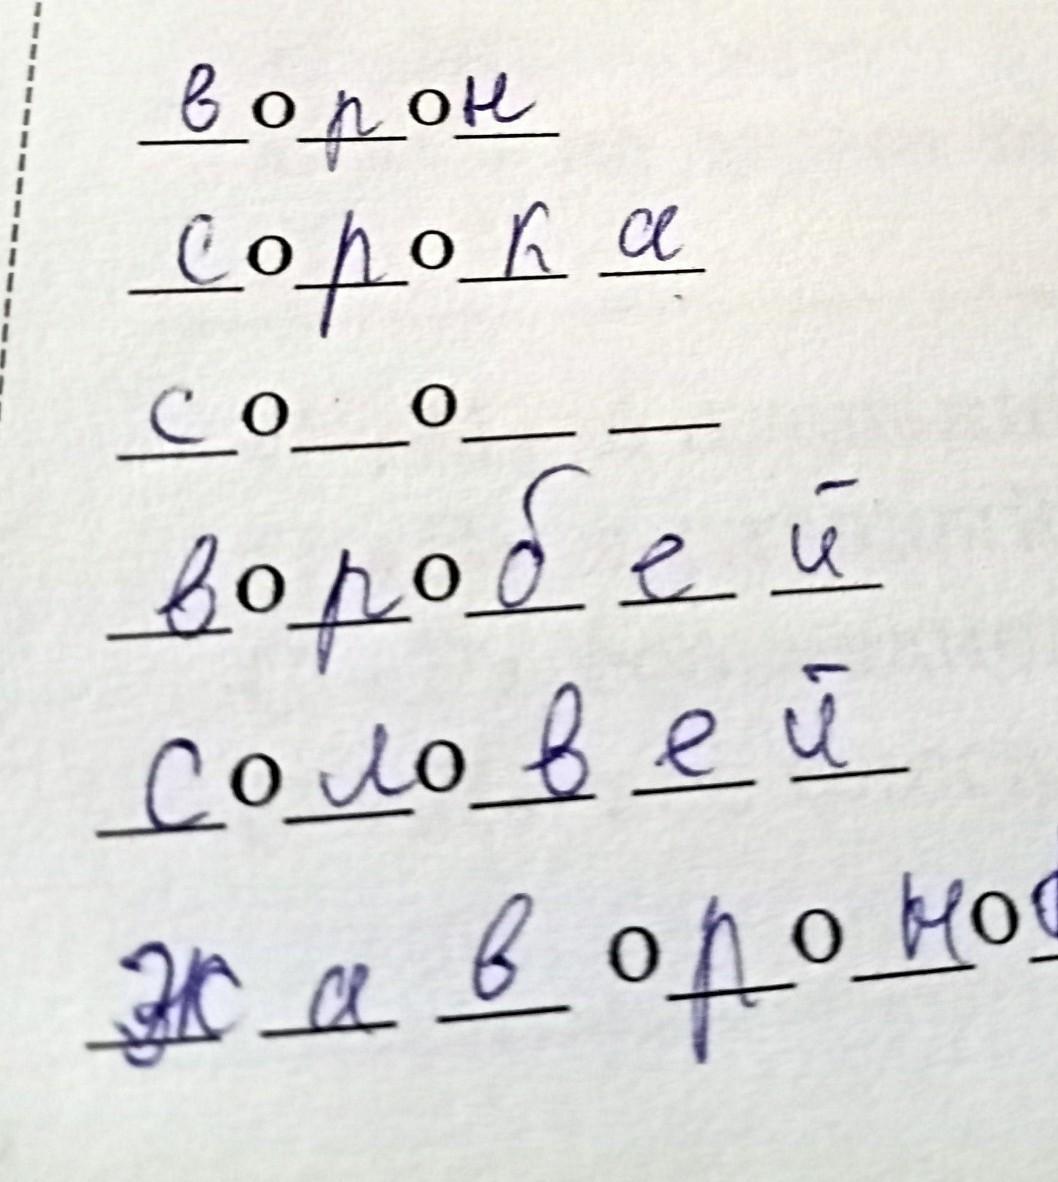 ворон
сорока
со_о_ _
воробей
соловей
жавороно